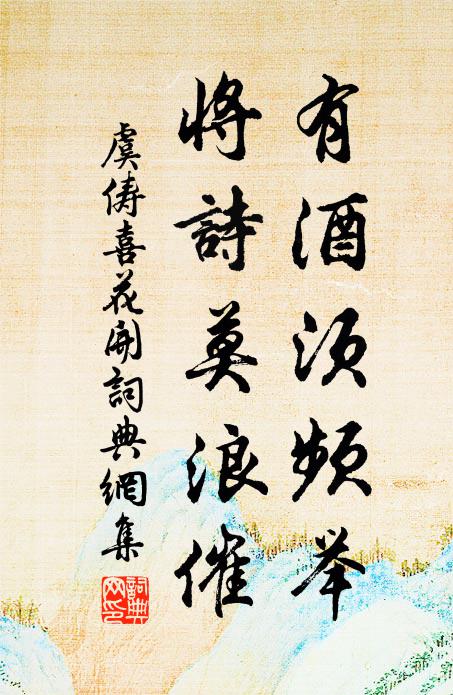 有酒须频举
將詩莫浪催
虞儔喜花開詞典網集
詞典